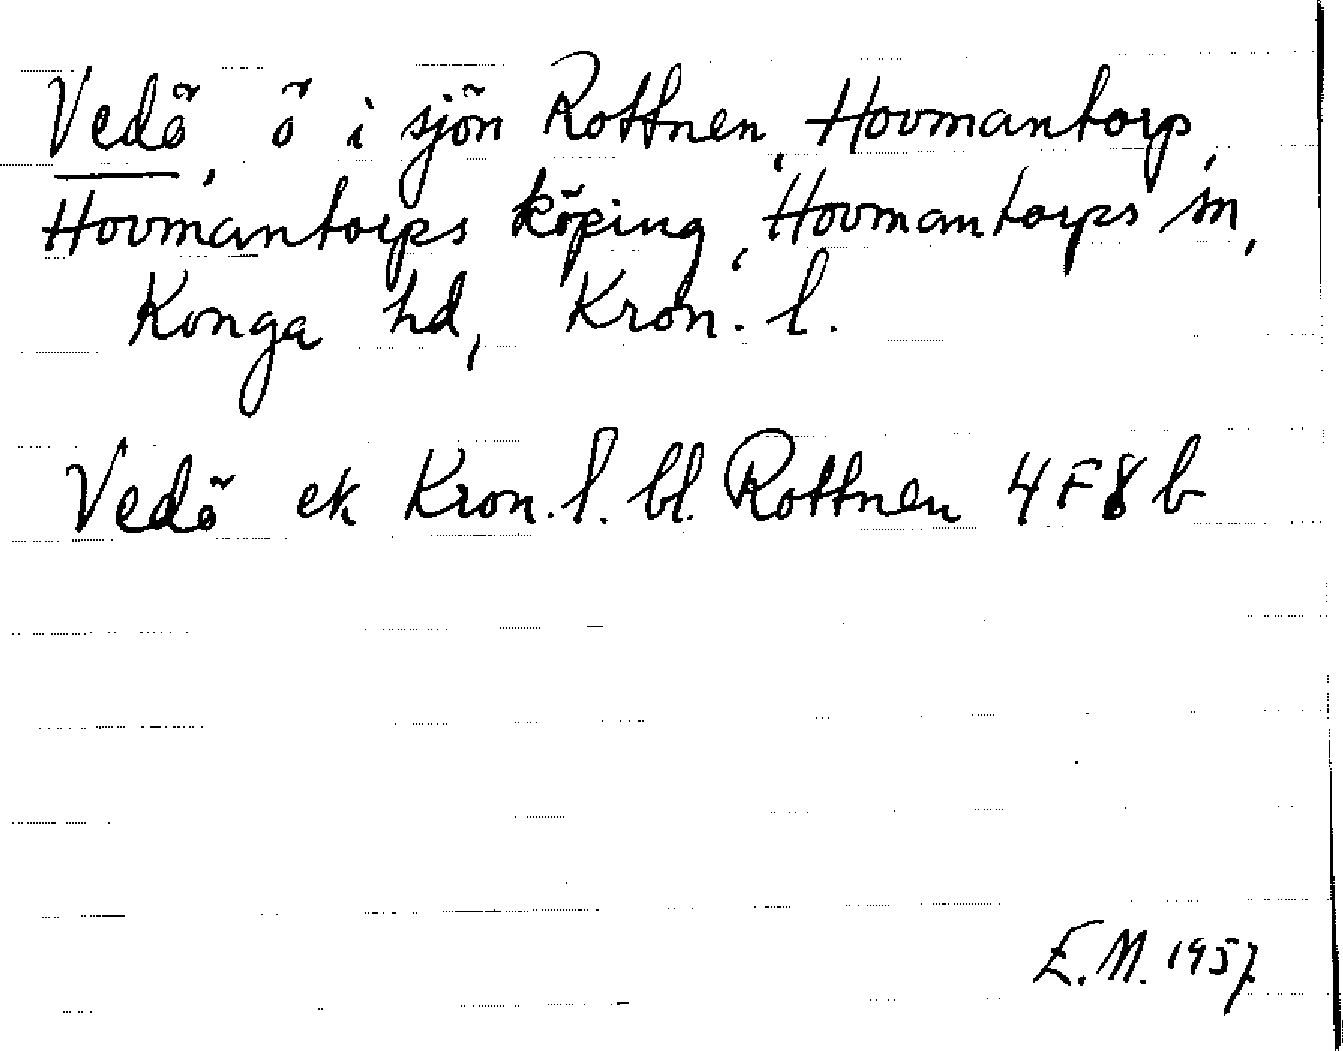 Vedö, ö i sjön Rottnen, Hovmantorp,
Hovmantorps köping, Hovmantorps sn,
Konga hd, Kron. l.
Vedö ek Kron. l. bl. Rottnen 4F8b
E.M. 1957